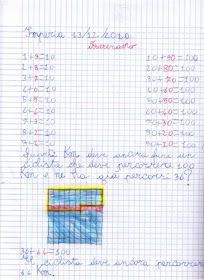 Imperia 13/12/2010
Osserviamo
1+9=10 10+90=100
2+8=10 20+80=100
3+7=10 30+70=100
4+6=10 40+60=100
5+5=10 50+50=100
6+4=10 60+40=100
7+3=10 70+30=100
8+2=10 80+20=100
9+1=10 90+10=100
Quanti Km deve ancora fare un
ciclista che deve percorrere 100
Km e ne ha già percorsi 36?
36+64=100
Il ciclista deve ancora percorrere
64 Km.